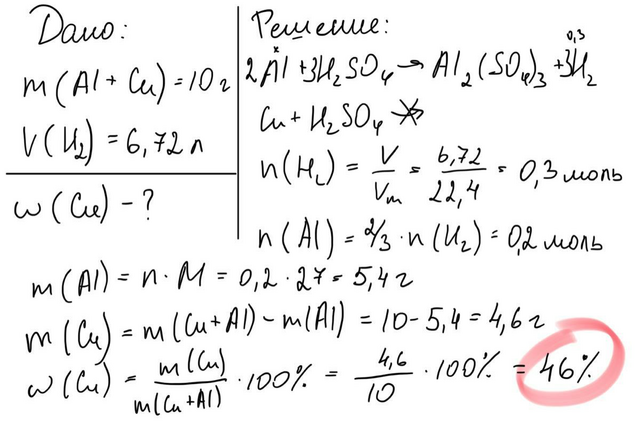 Дано:
m(Al + Cu) = 10 г
V(H₂) = 6,72 л
ω(Cu) - ?
Решение:
x 0,3
2Al + 3H₂SO₄ → Al₂(SO₄)₃ + 3H₂
Cu + H₂SO₄ ↛
n(H₂) = V/Vm = 6,72/22,4 = 0,3 моль
n(Al) = 2/3 · n(H₂) = 0,2 моль
m(Al) = n · M = 0,2 · 27 = 5,4 г
m(Cu) = m(Cu + Al) - m(Al) = 10 - 5,4 = 4,6 г
ω(Cu) = m(Cu)/m(Cu + Al) · 100% = 4,6/10 · 100% = 46%